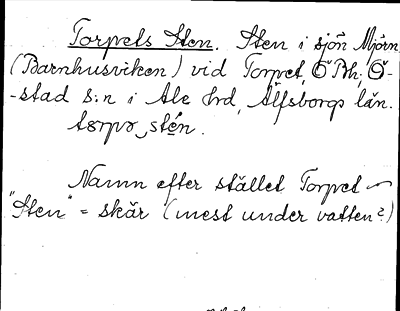 Torpels Sten. Sten i sjön Mjörn
(Barnhusviken) vid Torpet, Ö Bh; Ö-
-stad s:n i Ale hd, Älfsborgs län.
tɷrpɷ stén.
Namn efter stället Torpet ~
"Sten" = skär (mest under vatten?)